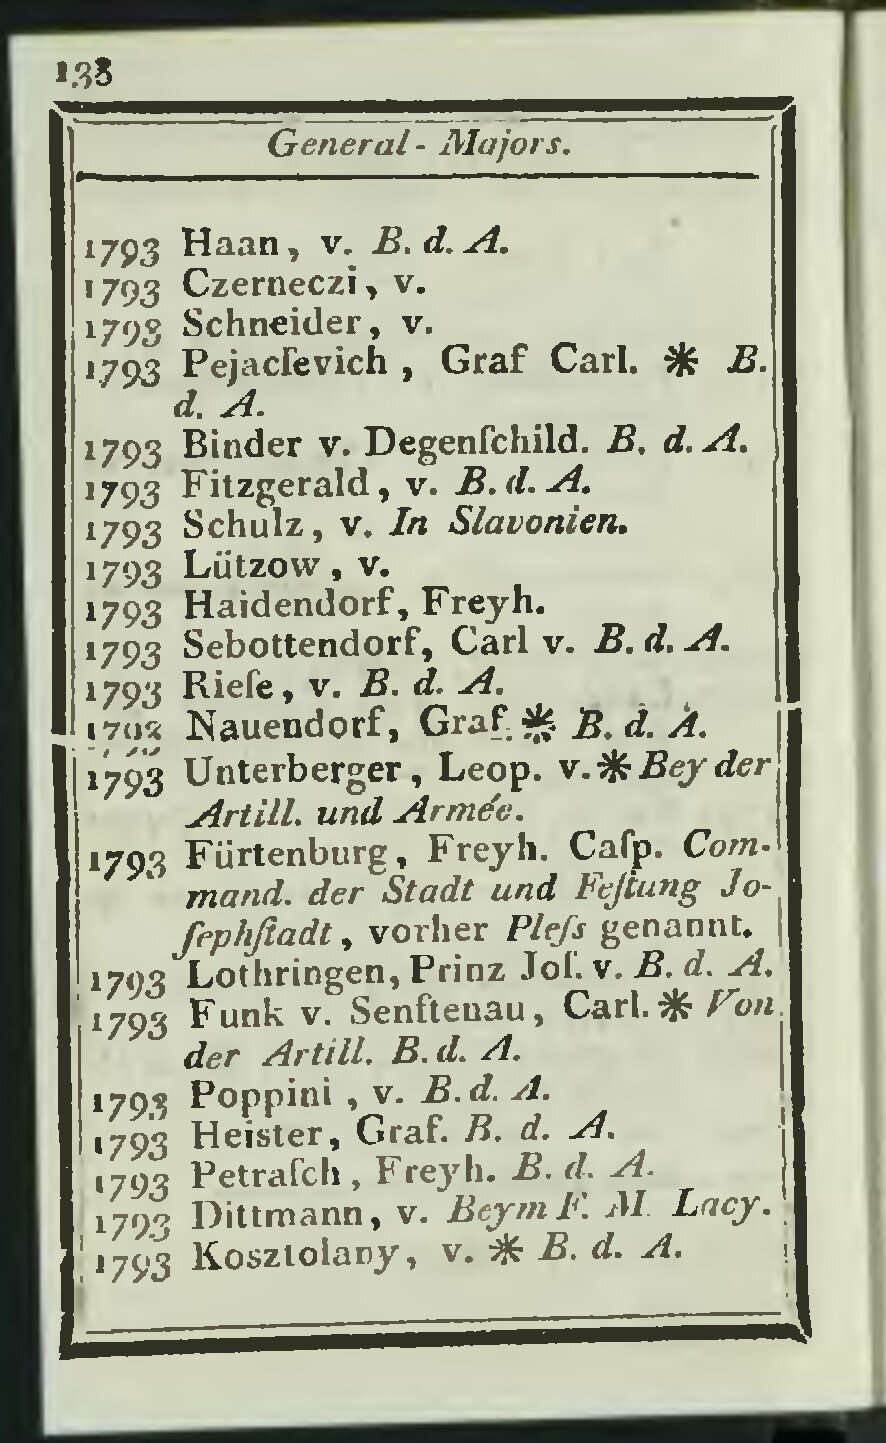 138
General-Majors.
1793 Haan, v. B. d. A.
1793 Czerneczi, v.
1793 Schneider, v.
1793 Pejacſevich, Graf Carl. ✻ B.
d. A.
1793 Binder v. Degenſchild. B. d. A.
1793 Fitzgerald, v. B. d. A.
1793 Schulz, v. In Slavonien.
1793 Lützow, v.
1793 Haidendorf, Freyh.
1793 Sebottendorf, Carl v. B. d. A.
1793 Rieſe, v. B. d. A.
1793 Nauendorf, Graf. ✻ B. d. A.
1793 Unterberger, Leop. v. ✻ Bey der
Artill. und Armée.
1793 Fürtenburg, Freyh. Caſp. Com-
mand. der Stadt und Feſtung Jo-
ſephſtadt, vorher Pleſs genannt.
1793 Lothringen, Prinz Joſ. v. B. d. A.
1793 Funk v. Senftenau, Carl. ✻ Von
der Artill. B. d. A.
1793 Poppini, v. B. d. A.
1793 Heister, Graf. B. d. A.
1793 Petraſch, Freyh. B. d. A.
1793 Dittmann, v. Beym F. M. Lacy.
1793 Kosztolany, v. ✻ B. d. A.